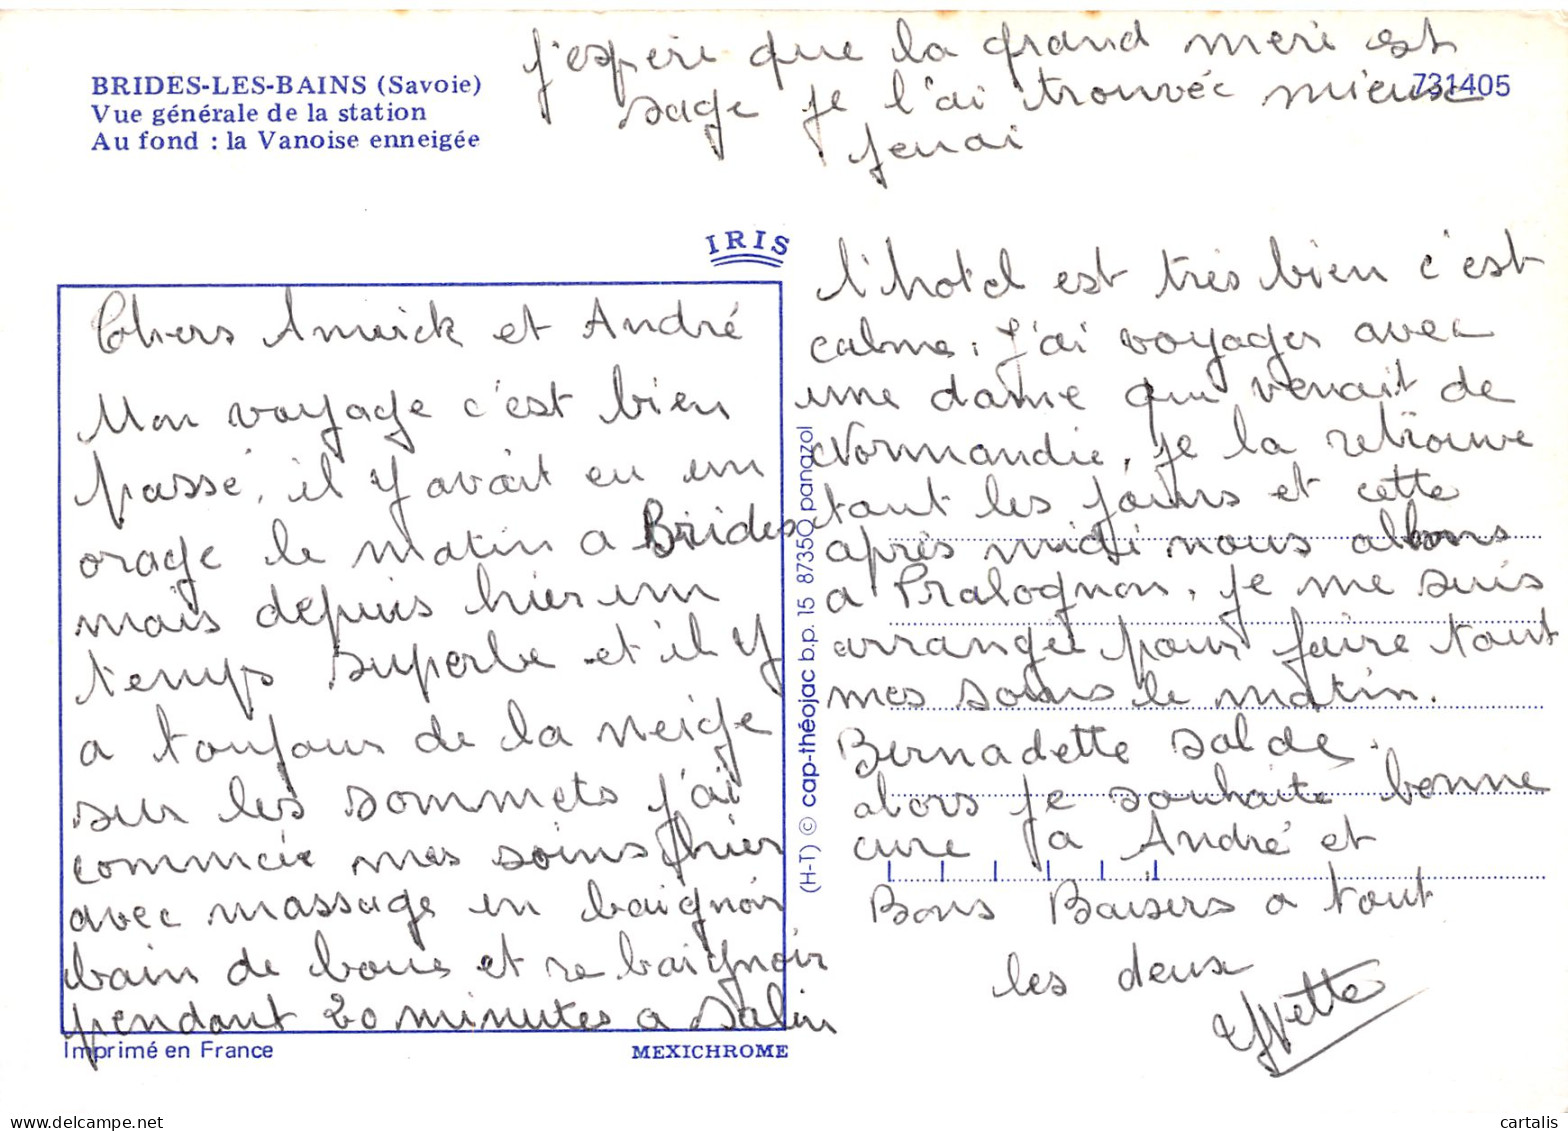 BRIDES-LES-BAINS (Savoie)
Vue générale de la station
Au fond : la Vanoise enneigée
731405
j'espère que la grand mere est
sage je l'ai trouvée mieux
IRIS
Chers Annick et André
Mon voyage c'est bien
passé, il y avait eu un
orage le matin a Brides
mais depuis hier un
temps superbe et il y
a toujours de la neige
sur les sommets j'ai
commcée mes soins hier
avec massage en baignoir
bain de boue et re baignoir
pendant 20 minutes a Salin
l'hotel est très bien c'est
calme. J'ai voyager avec
une dame qui venait de
Normandie, je la retrouve
tout les jours et cette
après midi nous allons
a Pralognon, je me suis
arrangée pour faire tout
mes soins le matin.
Bernadette solde.
alors je souhaite bonne
cure a André et
Bons Baisers a tout
les deux
Yvette
(H-T) © cap-théojac b.p. 15 87350 panazol
Imprimé en France
MEXICHROME
cartalis